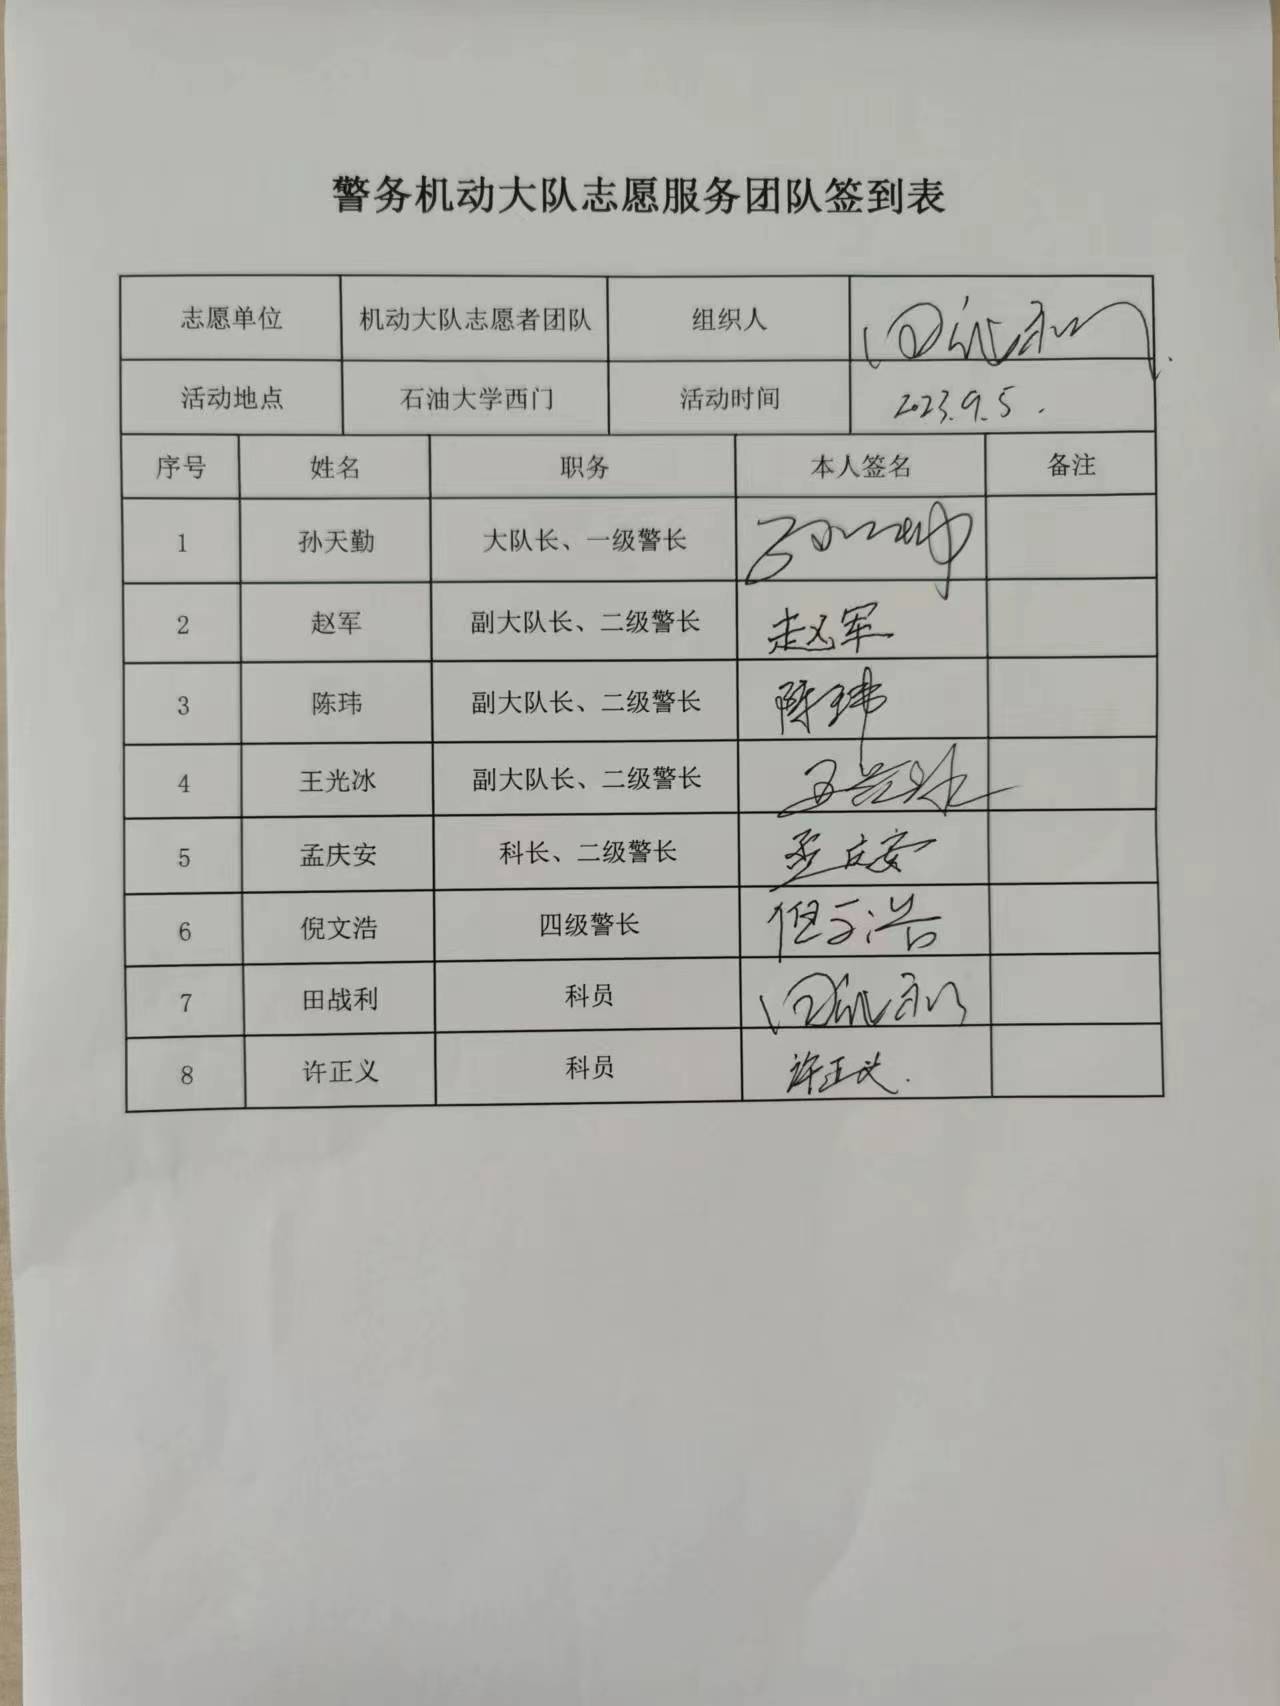 警务机动大队志愿服务团队签到表
志愿单位 机动大队志愿者团队 组织人 田战利
活动地点 石油大学西门 活动时间 2023.9.5.
序号 姓名 职务 本人签名 备注
1 孙天勤 大队长、一级警长
2 赵军 副大队长、二级警长 赵军
3 陈玮 副大队长、二级警长 陈玮
4 王光冰 副大队长、二级警长 王光冰
5 孟庆安 科长、二级警长 孟庆安
6 倪文浩 四级警长 倪文浩
7 田战利 科员 田战利
8 许正义 科员 许正义.